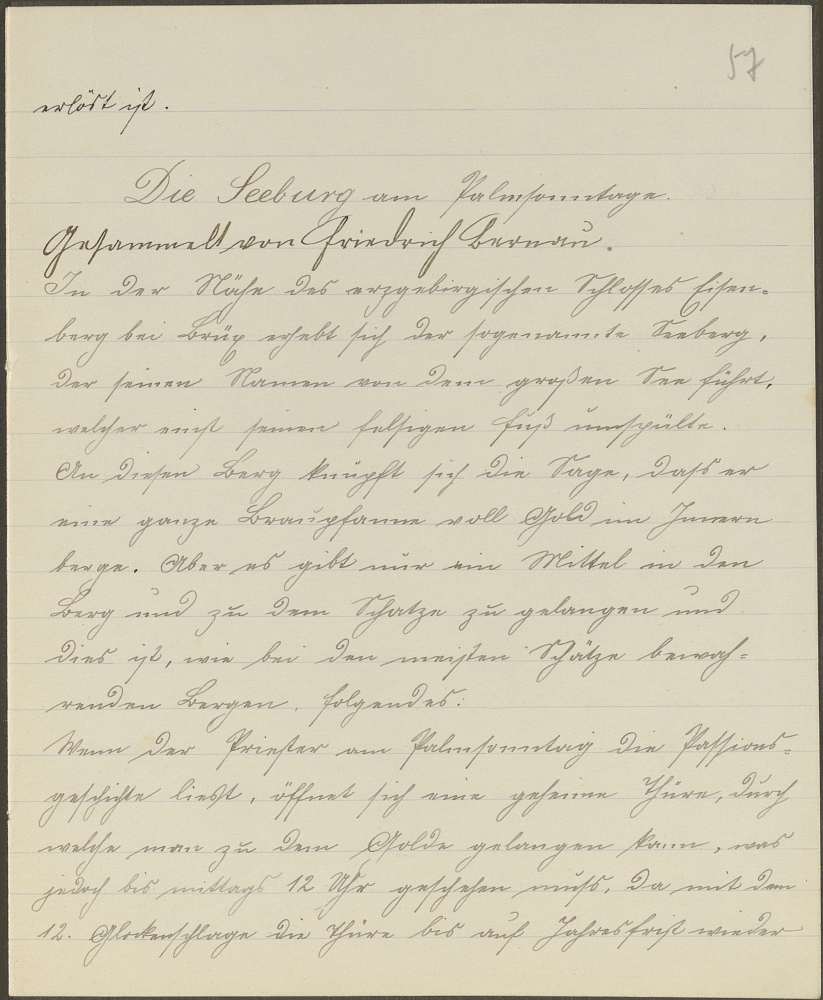 57
erlöst ist.
Die Seeburg am Palmsonntage.
Gesammelt von Friedrich Bernau.
In der Nähe des erzgebirgischen Schlosses Eisen-
berg bei Brüx erhebt sich der sogenannte Seeberg,
der seinen Namen von dem großen See führt,
welcher einst seinen felsigen Fuß umspülte.
An diesen Berg knüpft sich die Sage, dass er
eine ganze Braupfanne voll Gold im Innern
berge. Aber es gibt nur ein Mittel in den
Berg und zu dem Schatze zu gelangen und
dies ist, wie bei den meisten Schätze bewah-
renden Bergen, folgendes:
Wenn der Priester am Palmsonntag die Passions-
geschichte liest, öffnet sich eine geheime Thüre, durch
welche man zu dem Golde gelangen kann, was
jedoch bis mittags 12 Uhr geschehen muss, da mit dem
12. Glockenschlage die Thüre bis auf Jahresfrist wieder